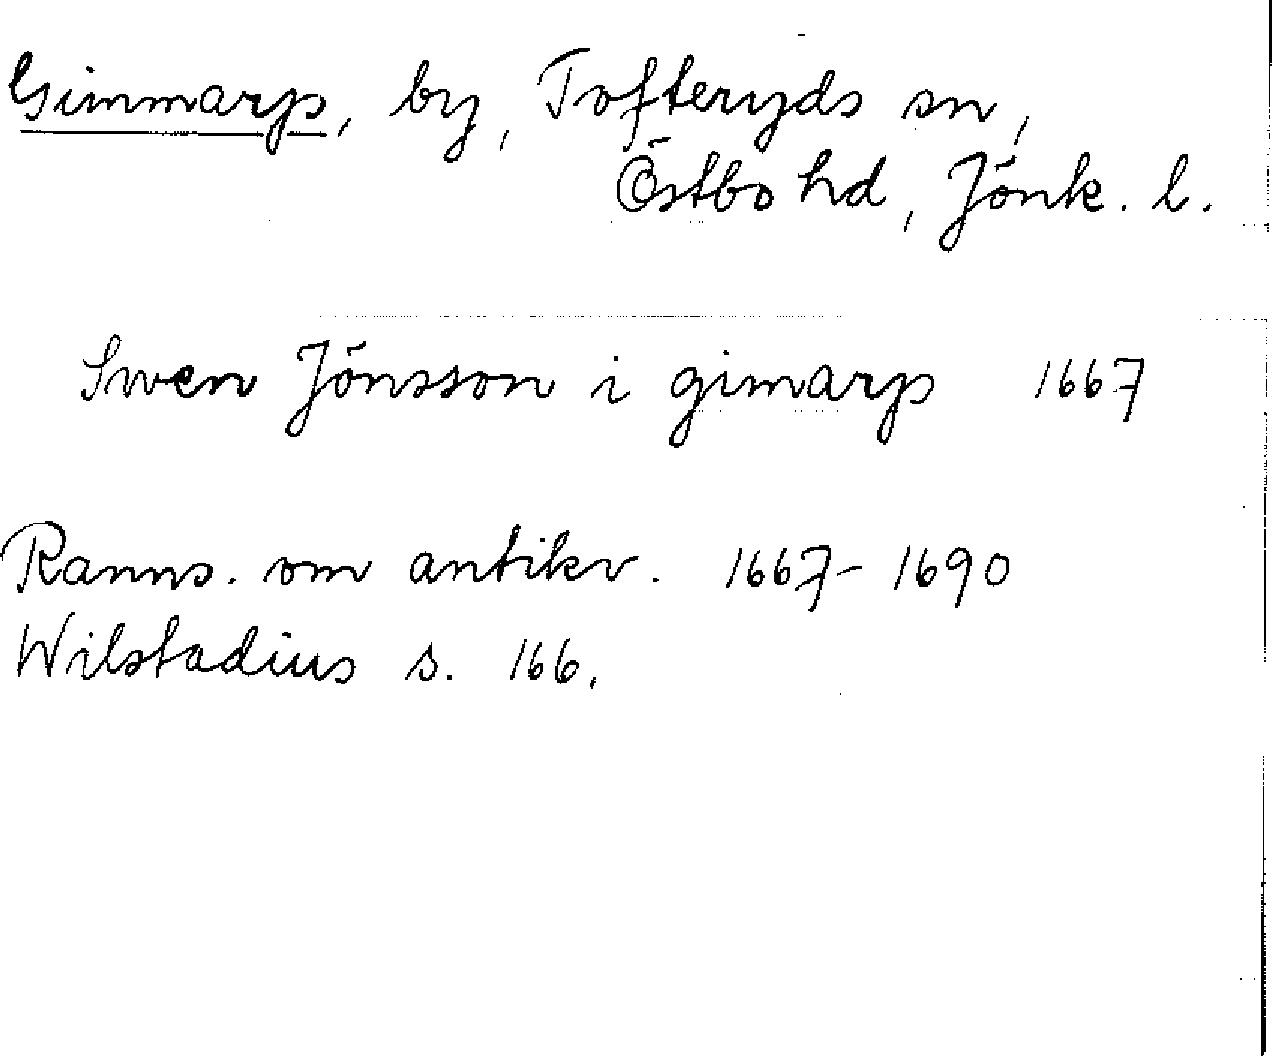 Gimmarp, by, Tofteryds sn,
Östbo hd, Jönk. l.
Swen Jönsson i gimarp 1667
Ranns. om antikv. 1667-1690
Wilstadius s. 166.